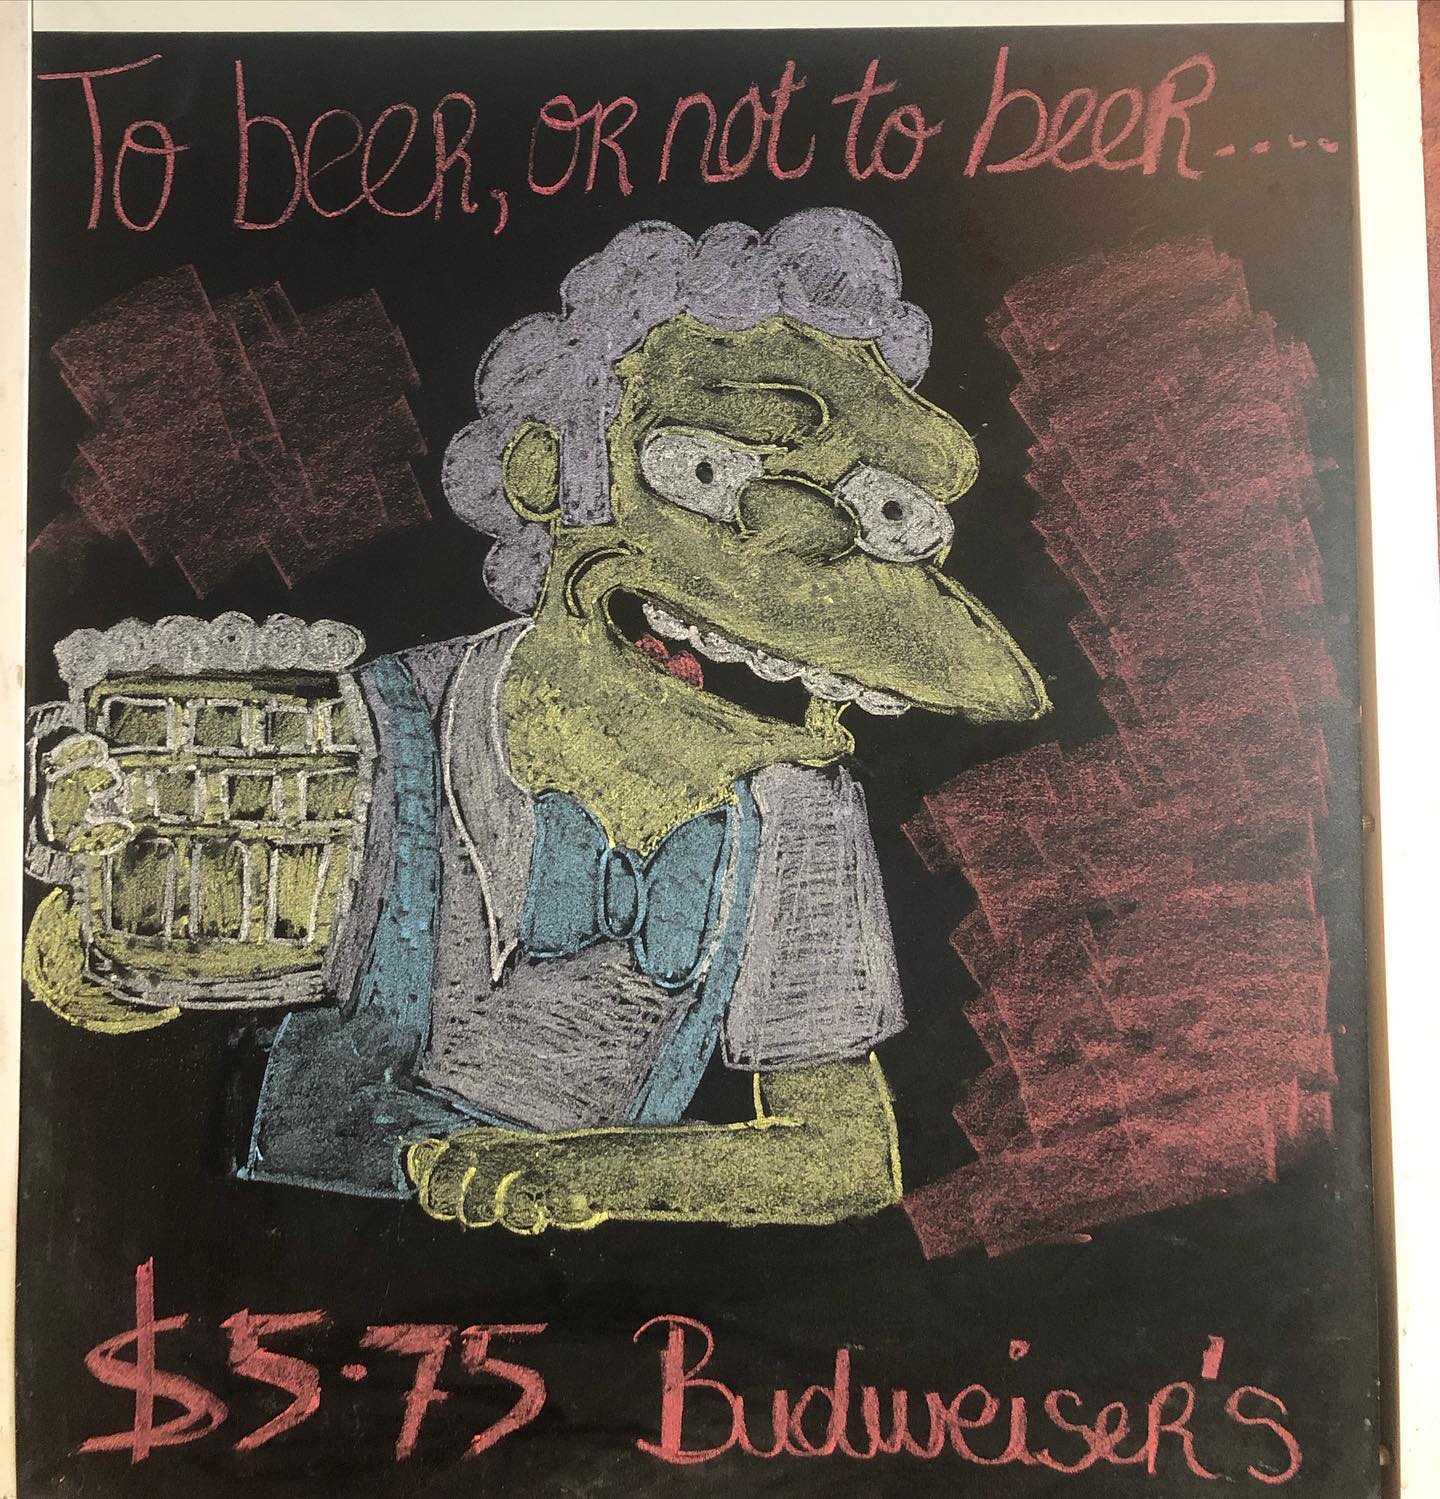 To beer, or not to beer....
$5.75 Budweiser's